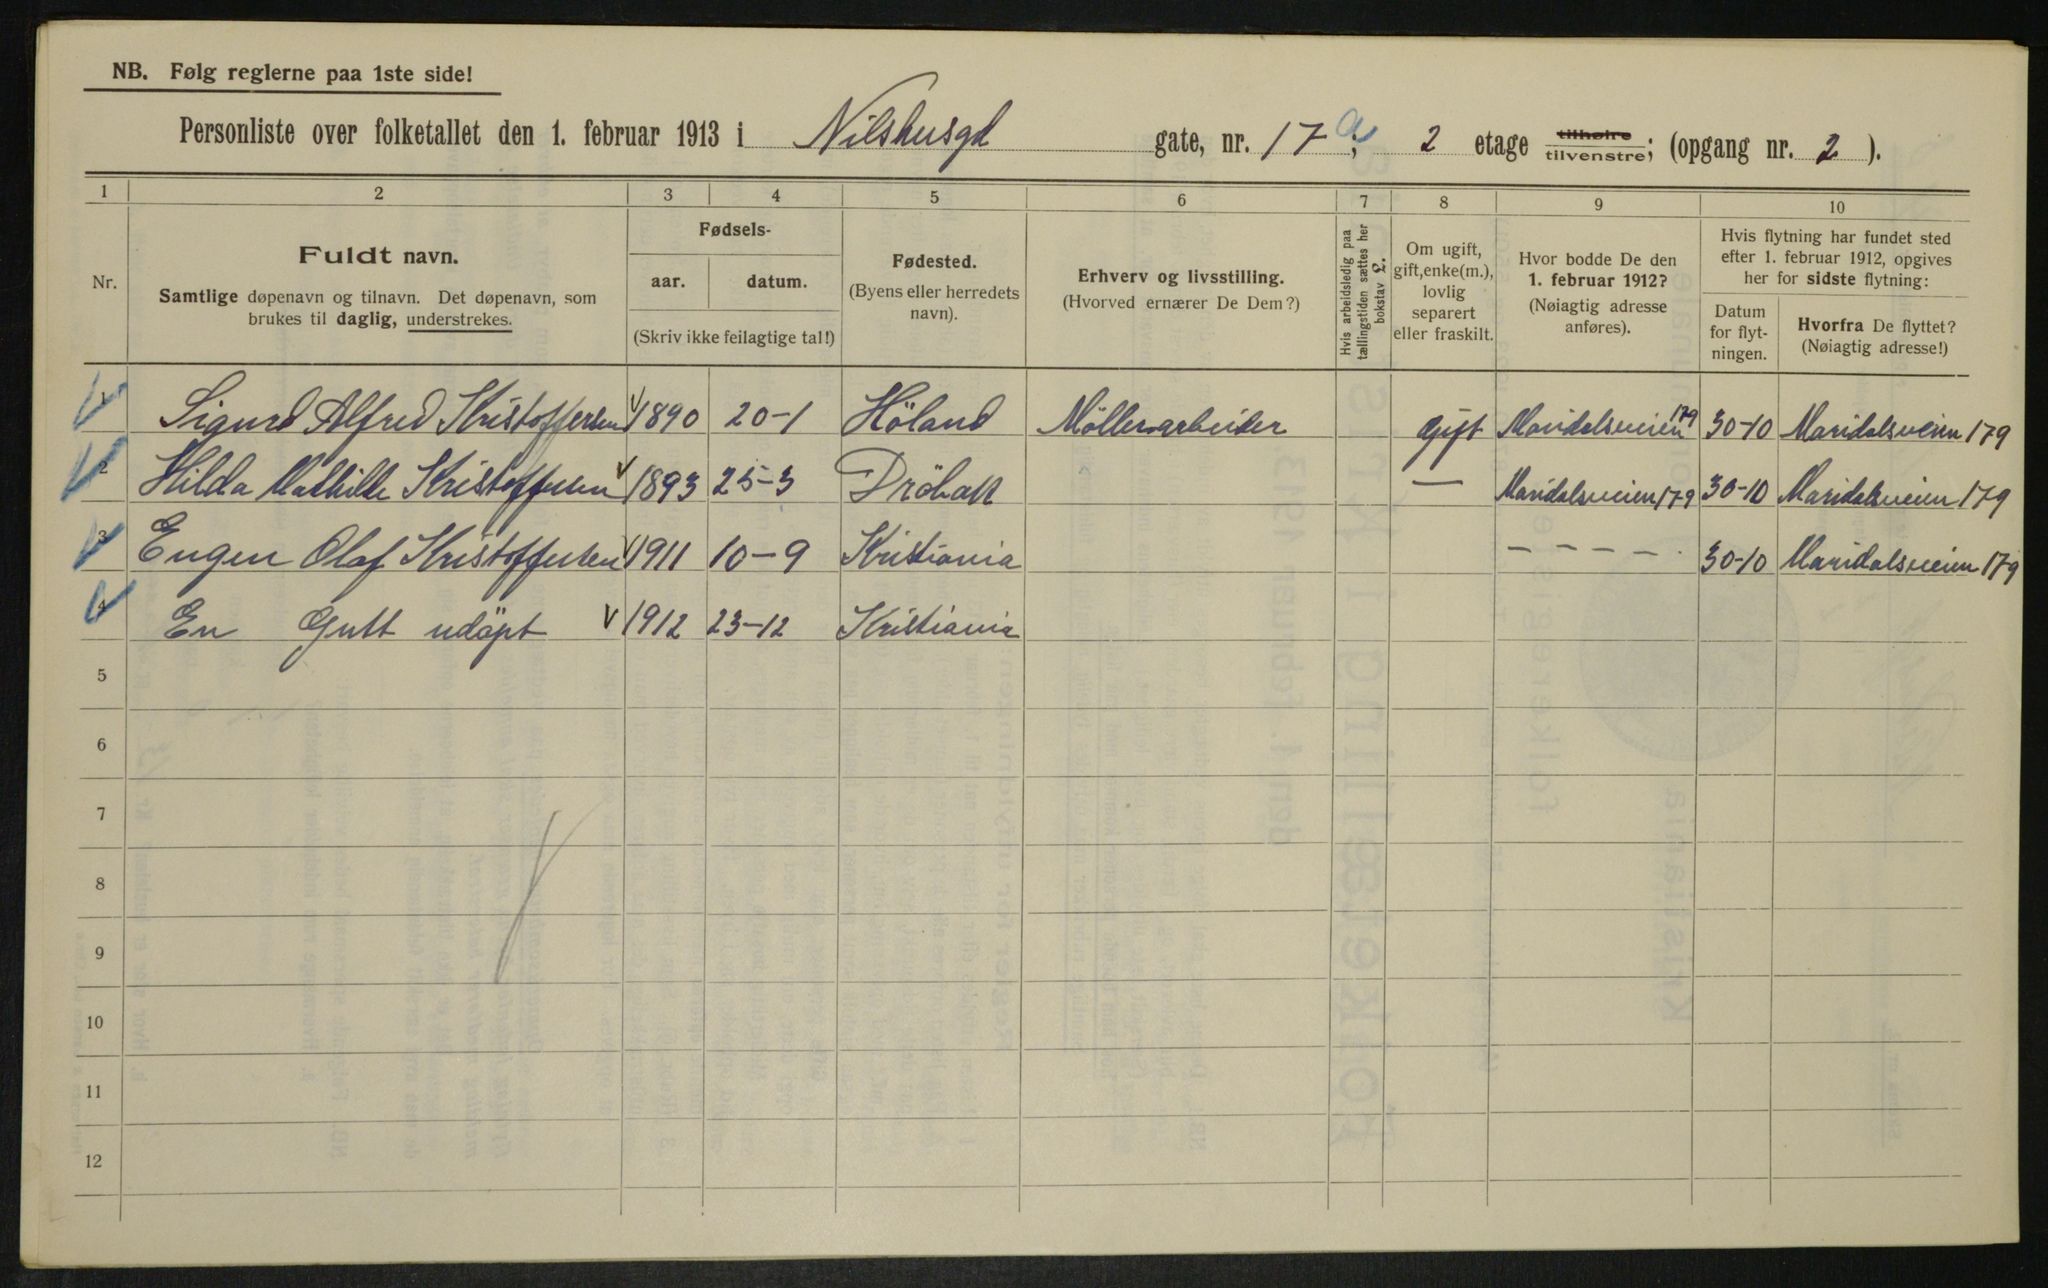 NB. Følg reglerne paa 1ste side!
Personliste over folketallet den 1. februar 1913 i Nilshusgd gate, nr. 17 a; 2 etage tilhøire tilvenstre; (opgang nr. 2 ).
1 2 3 4 5 6 7 8 9 10
Nr.
Fuldt navn.
Samtlige døpenavn og tilnavn. Det døpenavn, som
brukes til daglig, understrekes.
Fødsels-
aar. datum.
(Skriv ikke feilagtige tal!)
Fødested.
(Byens eller herredets
navn).
Erhverv og livsstilling.
(Hvorved ernærer De Dem?)
Hvis arbeidsledig paa
tællingstiden sættes her
bokstav L.
Om ugift,
gift, enke(m.),
lovlig
separert
eller fraskilt.
Hvor bodde De den
1. februar 1912?
(Nøiagtig adresse
anføres).
Hvis flytning har fundet sted
efter 1. februar 1912, opgives
her for sidste flytning:
Datum
for flyt-
ningen.
Hvorfra De flyttet?
(Nøiagtig adresse!)
1 Sigurd Alfred Kristoffersen 1890 20-1 Höland Möllerarbeider gift Maridalsveien 179 30-10 Maridalsveien 179
2 Hilda Mathilde Kristoffersen 1893 25-3 Dröbak — Maridalsveien 179 30-10 Maridalsveien 179
3 Eugen Olaf Kristoffersen 1911 10-9 Kristiania - - - - - 30-10 Maridalsveien 179
4 En Gutt udöpt 1912 23-12 Kristiania
5
6
7
8
9
10
11
12